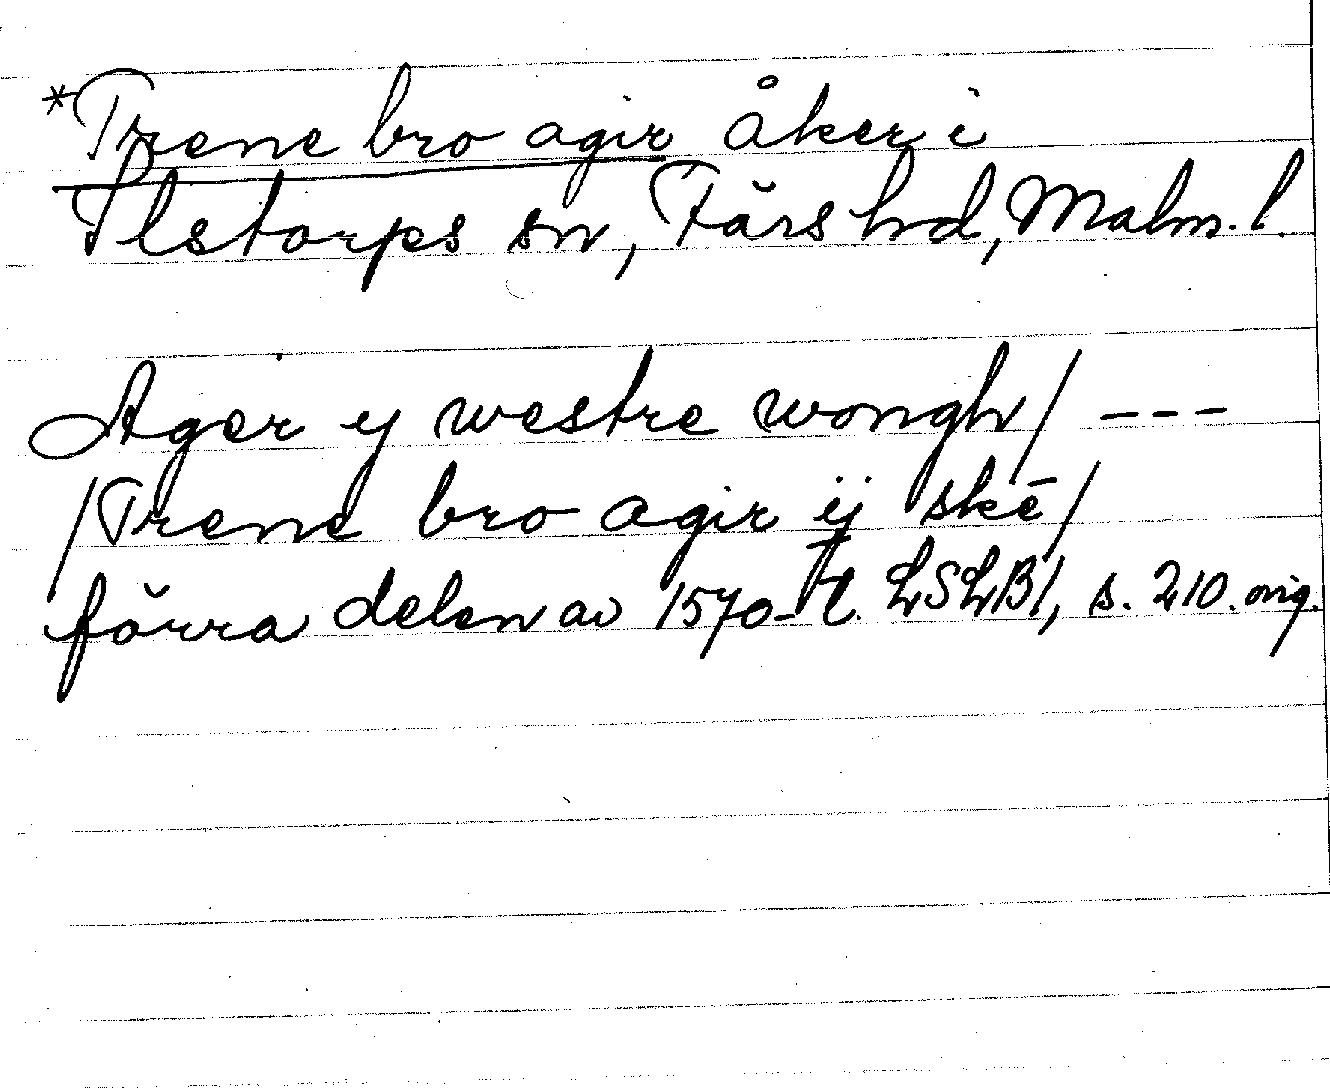 *Trene bro agir åker i
Ilstorps sn, Färs hd, Malm. l.
Ager y westre wongh/ ---
/Trene bro agir ij skē/
förra delen av 1570-t. LSLB1, s. 210. orig.